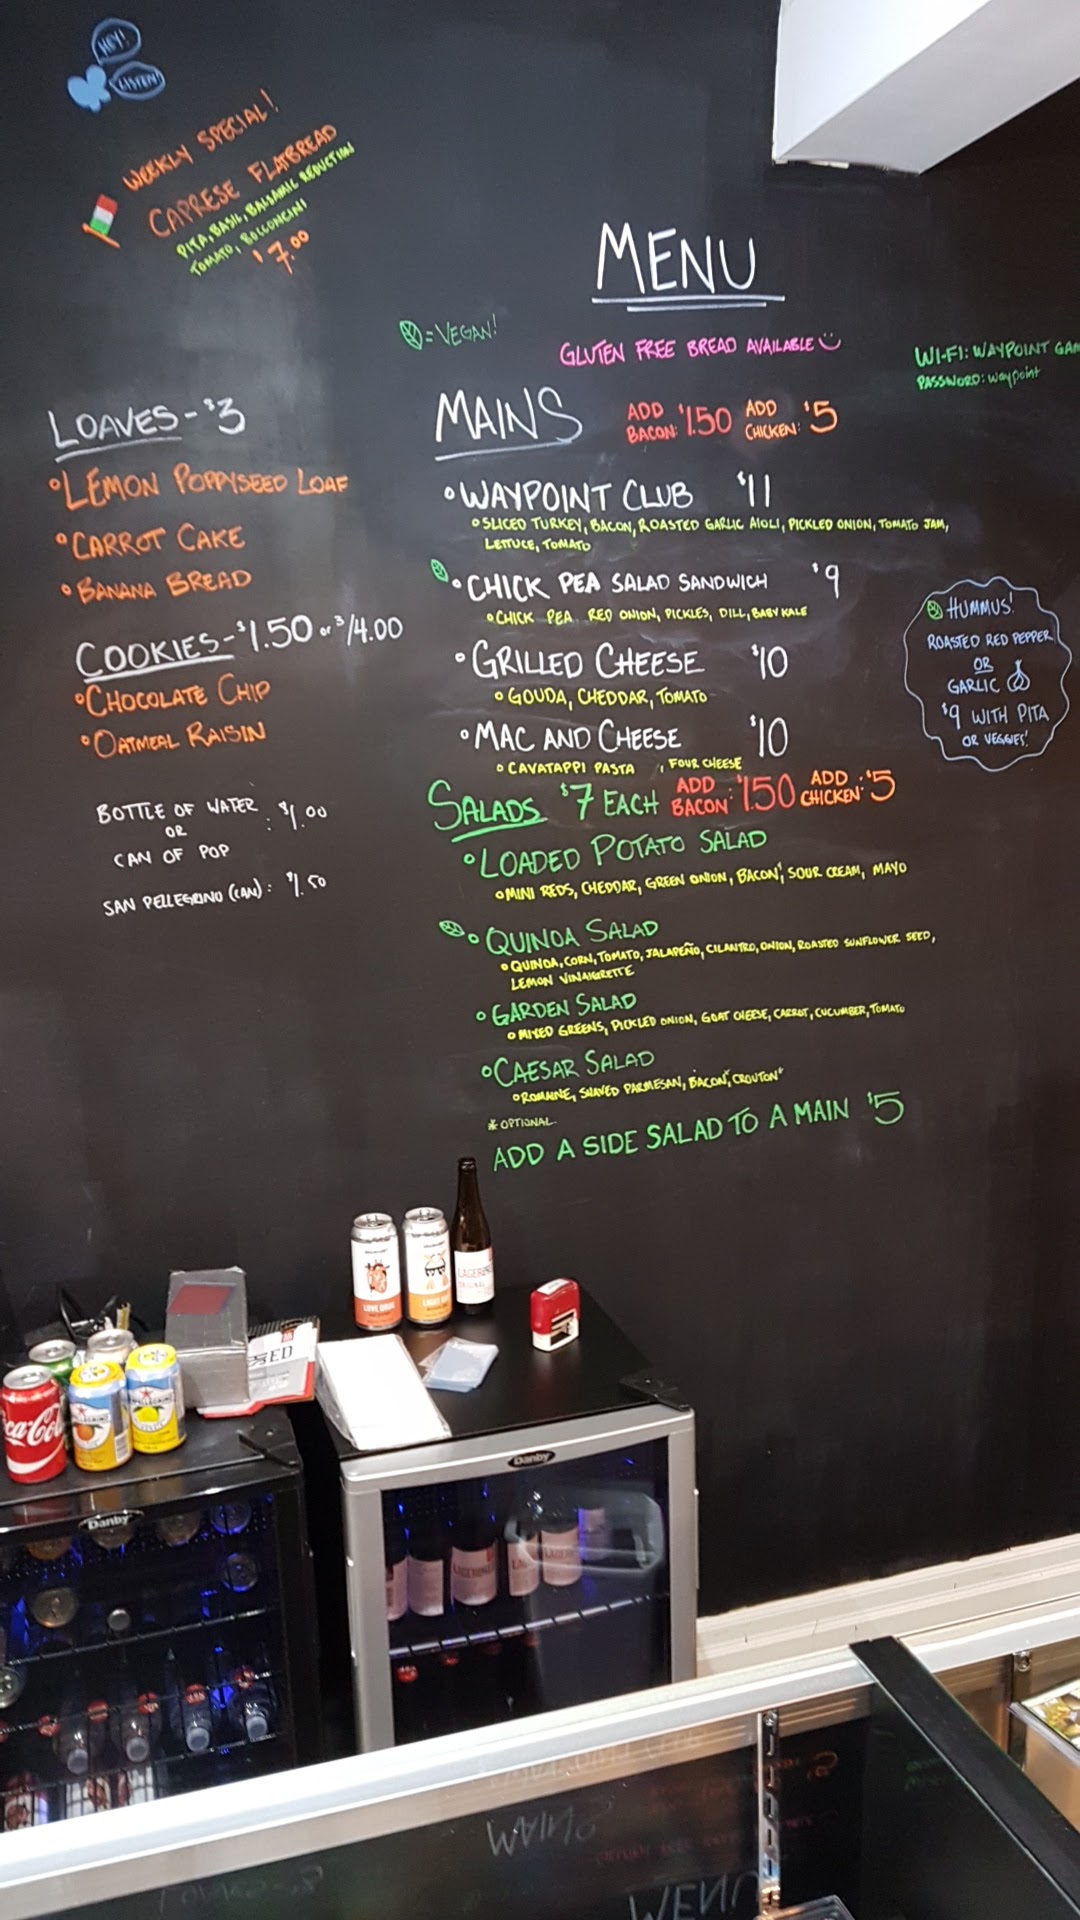 HEY!
LISTEN!
WEEKLY SPECIAL!
CAPRESE FLATBREAD
PITA, BASIL, BALSAMIC REDUCTION
TOMATO, BOCCONCINI
$7.00
MENU
= VEGAN!
GLUTEN FREE BREAD AVAILABLE
WI-FI: WAYPOINT GAM
PASSWORD: waypoint
LOAVES - $3
LEMON POPPYSEED LOAF
CARROT CAKE
BANANA BREAD
COOKIES - $1.50 or 3/4.00
CHOCOLATE CHIP
OATMEAL RAISIN
BOTTLE OF WATER
OR : $1.00
CAN OF POP
SAN PELLEGRINO (CAN): $1.50
MAINS
ADD BACON: $1.50 ADD CHICKEN: $5
WAYPOINT CLUB $11
SLICED TURKEY, BACON, ROASTED GARLIC AIOLI, PICKLED ONION, TOMATO JAM,
LETTUCE, TOMATO
CHICK PEA SALAD SANDWICH $9
CHICK PEA RED ONION, PICKLES, DILL, BABY KALE
GRILLED CHEESE $10
GOUDA, CHEDDAR, TOMATO
MAC AND CHEESE $10
CAVATAPPI PASTA , FOUR CHEESE
SALADS $7 EACH ADD BACON: $1.50 ADD CHICKEN: $5
LOADED POTATO SALAD
MINI REDS, CHEDDAR, GREEN ONION, BACON*, SOUR CREAM, MAYO
QUINOA SALAD
QUINOA, CORN, TOMATO, JALAPEÑO, CILANTRO, ONION, ROASTED SUNFLOWER SEED,
LEMON VINAIGRETTE
GARDEN SALAD
MIXED GREENS, PICKLED ONION, GOAT CHEESE, CARROT, CUCUMBER, TOMATO
CAESAR SALAD
ROMAINE, SHAVED PARMESAN, BACON*, CROUTON*
* OPTIONAL.
ADD A SIDE SALAD TO A MAIN $5
HUMMUS!
ROASTED RED PEPPER
OR
GARLIC
$9 WITH PITA
OR VEGGIES!
Coca-Cola
Danby
Danby